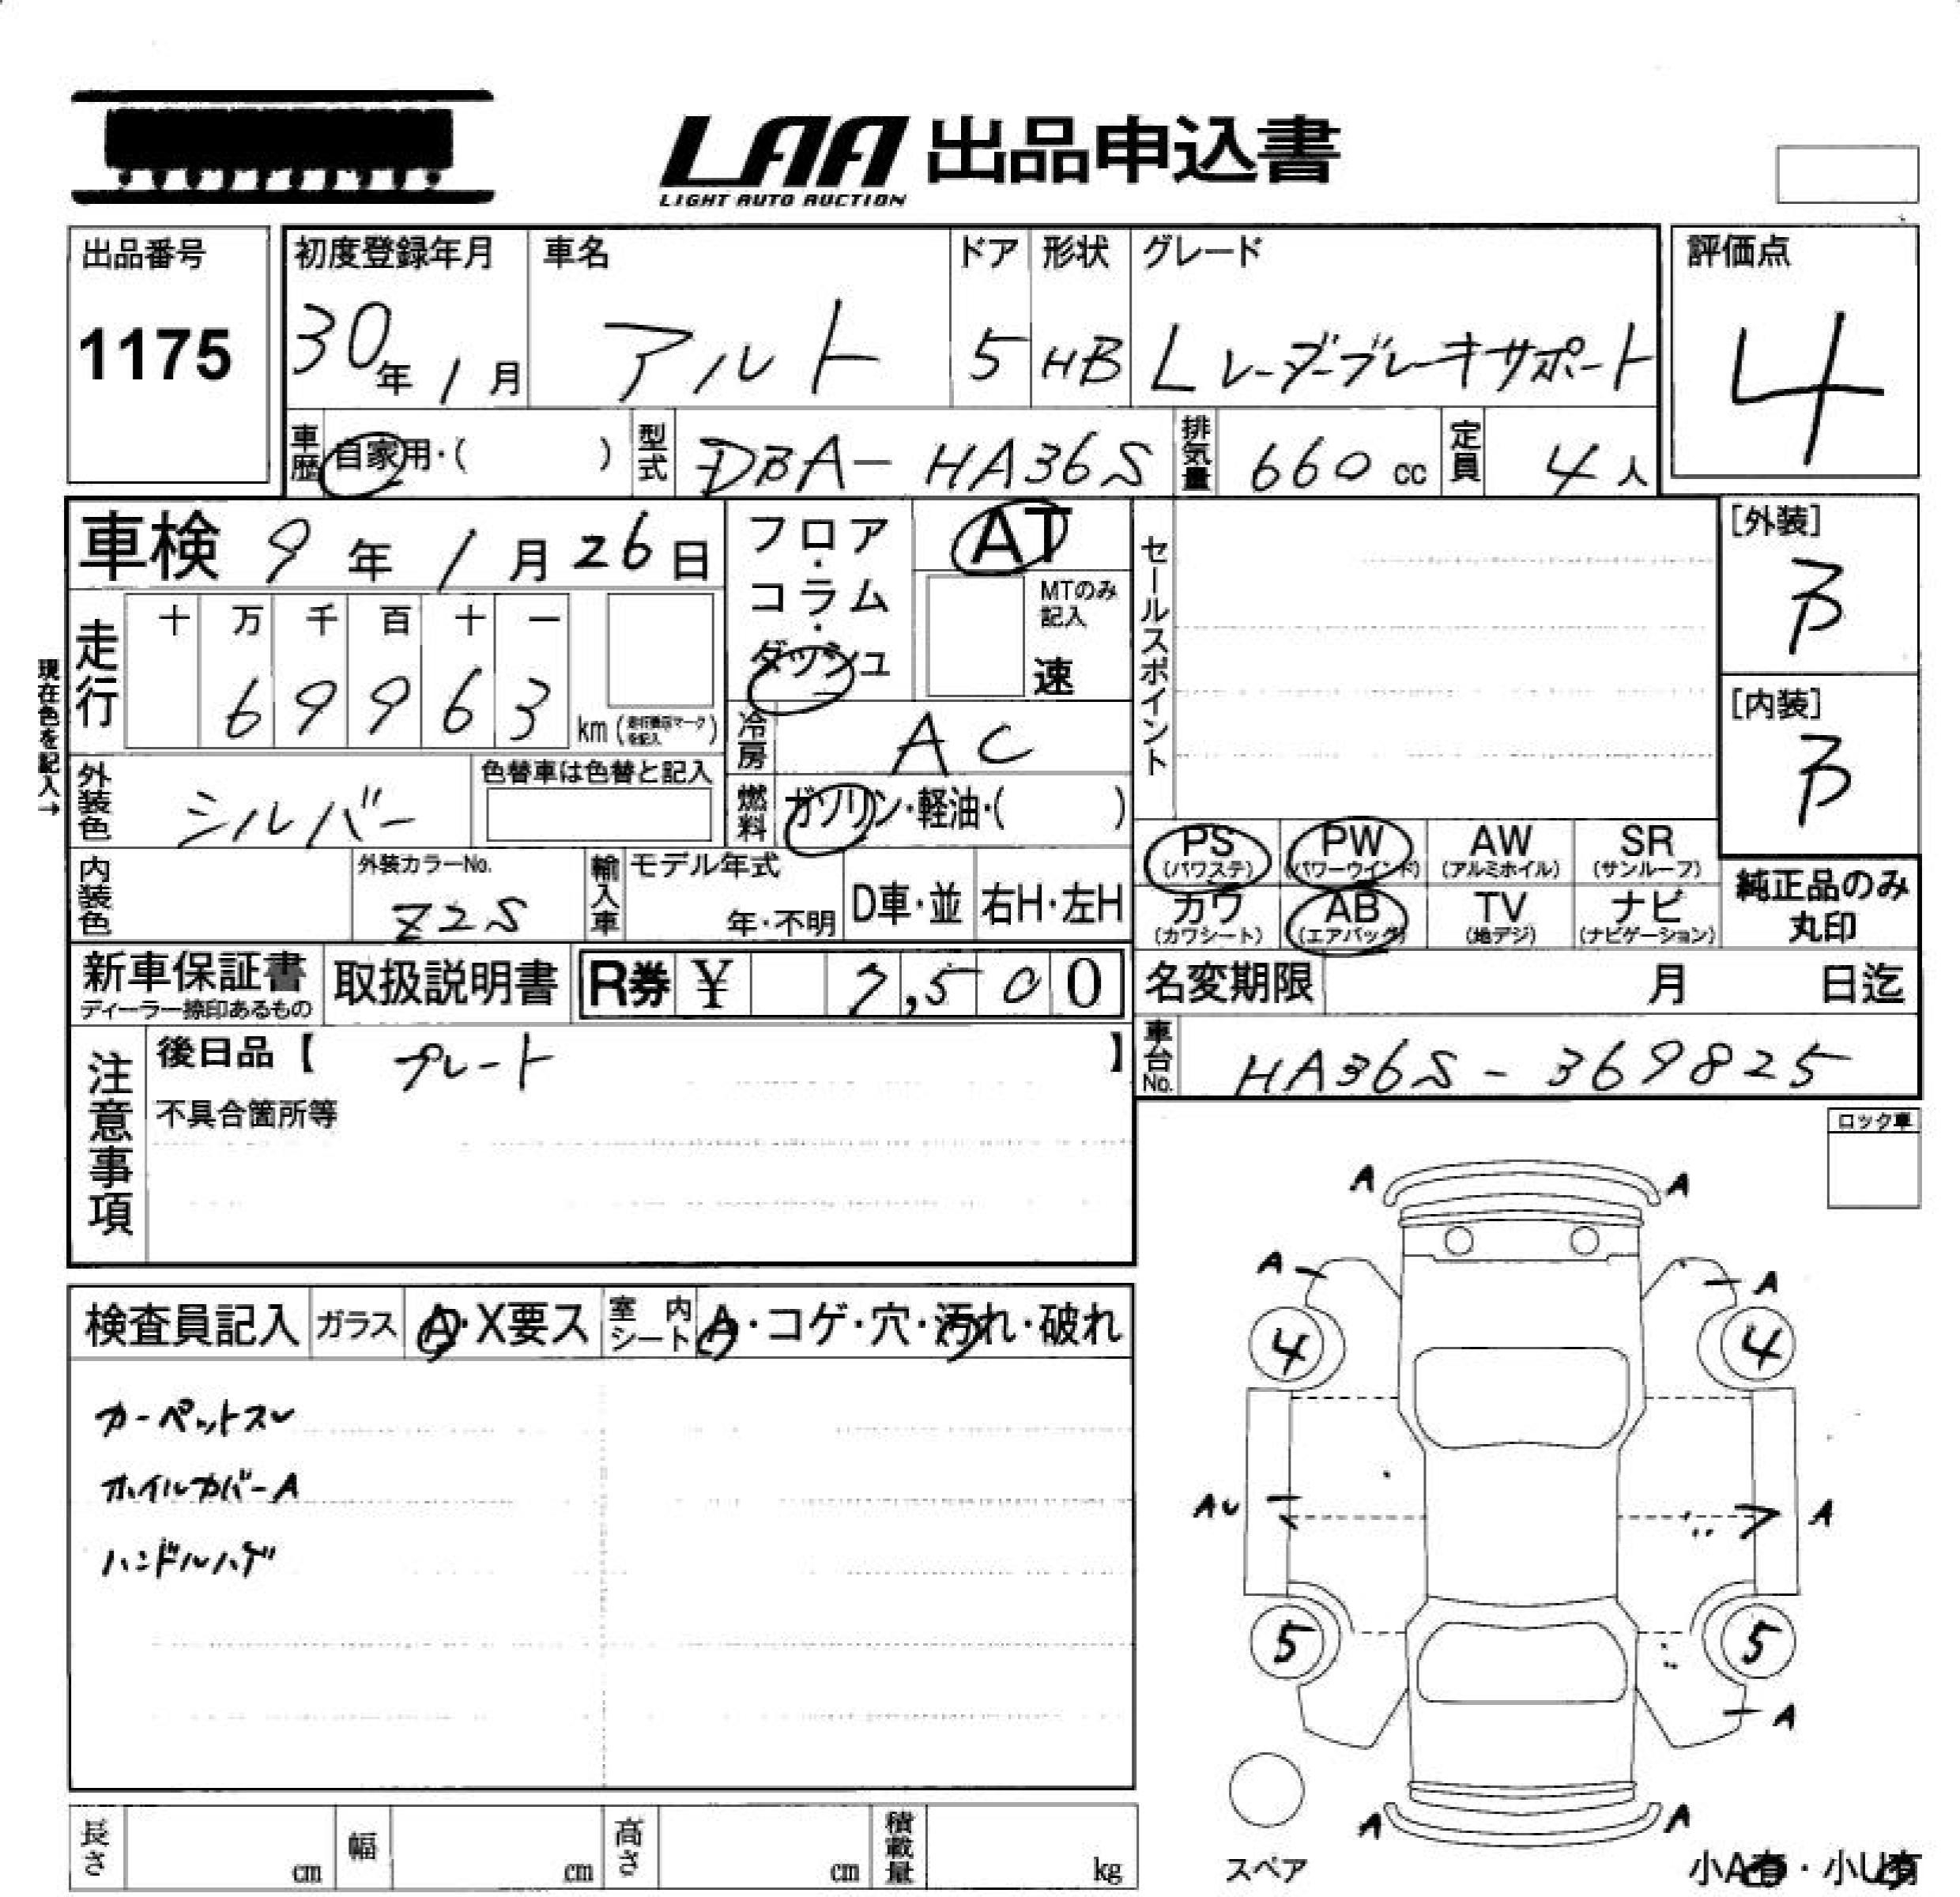 LAA 出品申込書
LIGHT AUTO AUCTION
出品番号
1175
初度登録年月
30年1月
車名
アルト
ドア
5
形状
HB
グレード
Lレーダーブレーキサポート
評価点
4
車歴 自家用・( )
型式 DBA-HA36S
排気量 660 cc
定員 4人
車検 9年1月26日
現在色を記入→
走行 十 万 千 百 十 一
6 9 9 6 3 km
外装色 シルバー
色替車は色替と記入
フロア・コラム・ダッシュ
AT
MTのみ記入
速
冷房 AC
燃料 ガソリン・軽油・( )
セールスポイント
[外装]
B
[内装]
B
内装色
外装カラーNo.
Z2S
輸入車 モデル年式
年・不明
D車・並 右H・左H
PS (パワステ)
PW (パワーウインド)
AW (アルミホイル)
SR (サンルーフ)
カワ (カワシート)
AB (エアバッグ)
TV (地デジ)
ナビ (ナビゲーション)
純正品のみ
丸印
新車保証書
ディーラー捺印あるもの
取扱説明書
R券 ¥ 7,500
名変期限 月 日迄
車台No. HA36S-369825
注意事項
後日品【 プレート 】
不具合箇所等
ロック車
検査員記入 ガラス A・X要ス 室内シート A・コゲ・穴・汚れ・破れ
カーペットスレ
ホイルカバーA
ハンドルハゲ
A A
A A
4 4
AU A
5 5
A
A A
スペア
小A有・小U有
長さ cm 幅 cm 高さ cm 積載量 kg